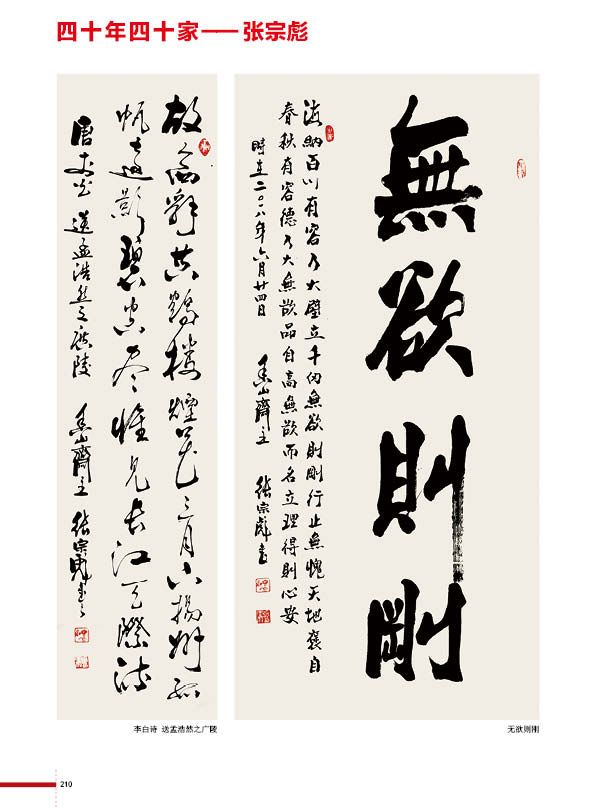 四十年四十家——张宗彪
無欲則剛
海納百川有容乃大壁立千仞無欲則剛行止無愧天地褒自
春秋有容德乃大無欲品自高無欲而名立理得則心安
時在二〇一八年六月廿四日 香山齋主 張宗彪書
故人西辭黄鶴樓煙花三月下揚州孤
帆遠影碧空盡惟見長江天際流
唐李白 送孟浩然之廣陵 香山齋主 張宗彪書
李白诗 送孟浩然之广陵
无欲则刚
210